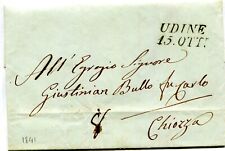 UDINE
15. OTT.
All' Egregio Signore
Giustinian Bullo fu Carlo
Chiozza
1841